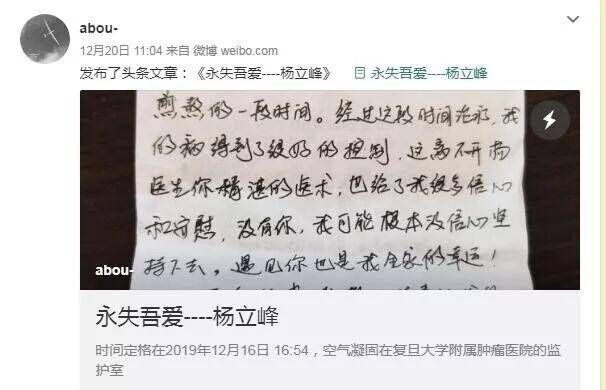 abou-
12月20日 11:04 来自 微博 weibo.com
发布了头条文章：《永失吾爱----杨立峰》 永失吾爱----杨立峰
煎熬的一段时间。经过这段时间治疗，我
的病得到了很好的控制，这离不开杨
医生你精湛的医术，也给了我很多信心
和安慰，没有你，我可能根本没信心坚
持下去。遇见你也是我全家的幸运！
abou-
永失吾爱----杨立峰
时间定格在2019年12月16日 16:54，空气凝固在复旦大学附属肿瘤医院的监
护室